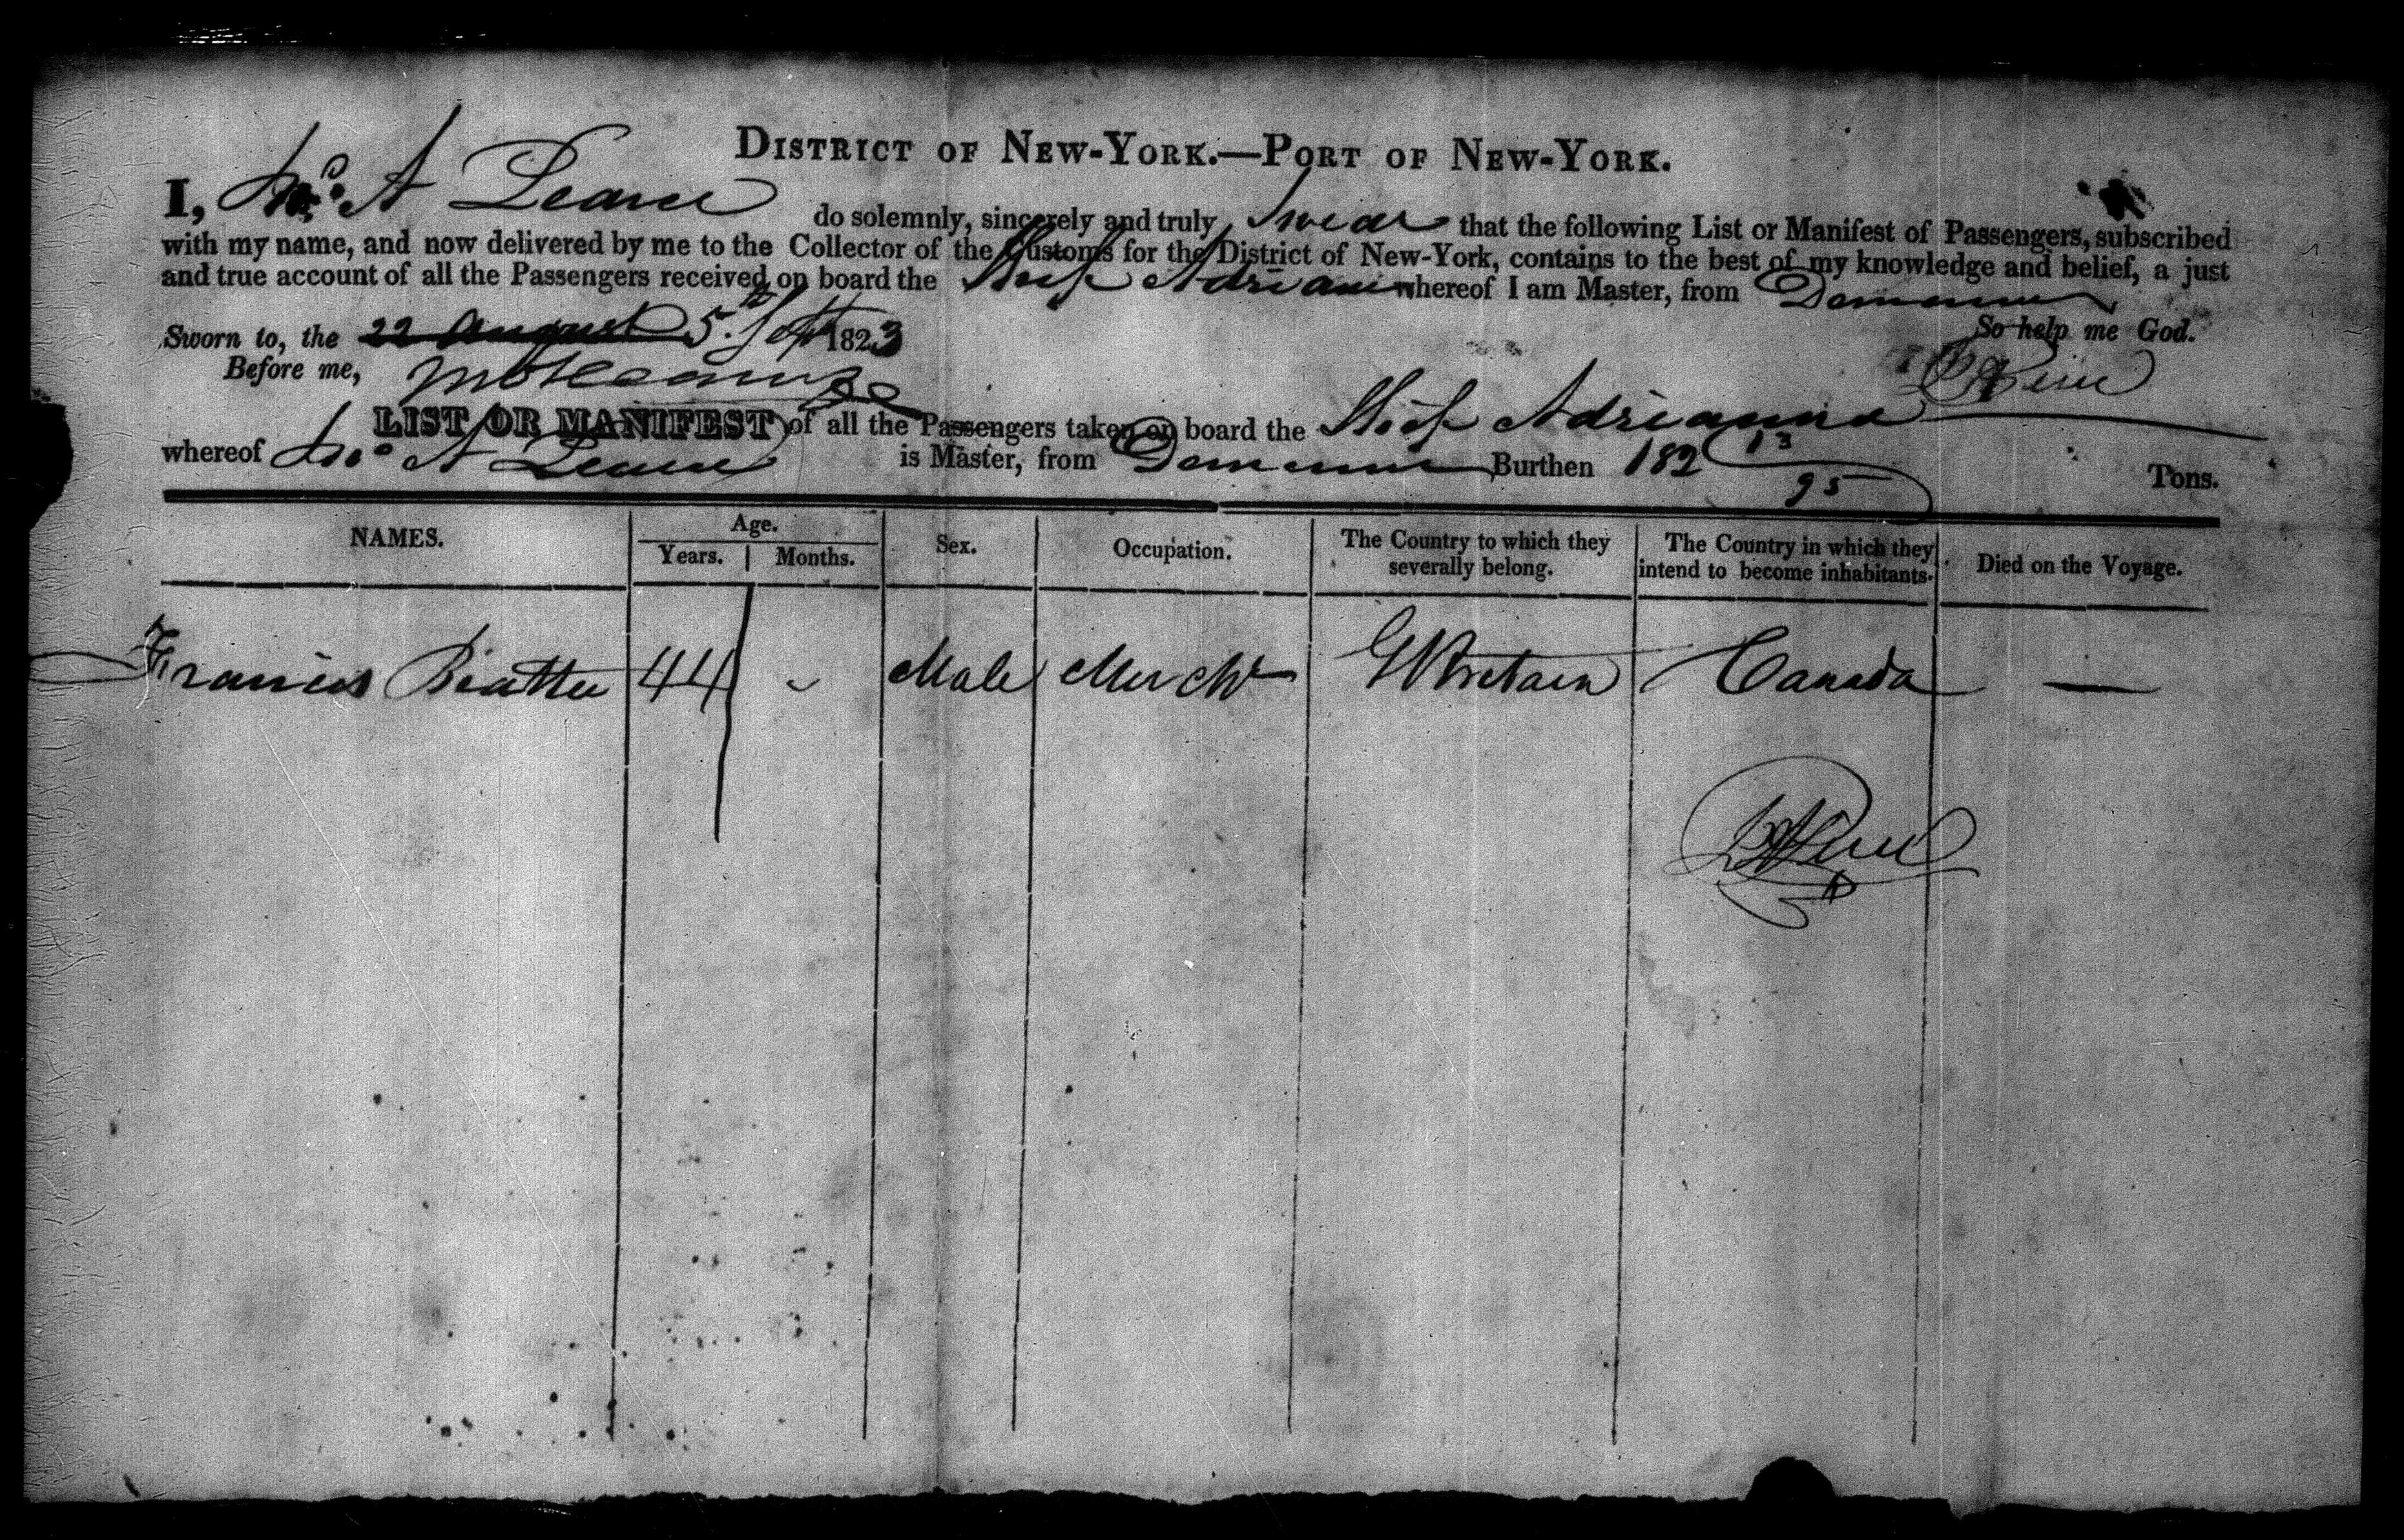 DISTRICT OF NEW-YORK.—PORT OF NEW-YORK.
I, A do solemnly, sincerely and truly Swear that the following List or Manifest of Passengers, subscribed
with my name, and now delivered by me to the Collector of the Customs for the District of New-York, contains to the best of my knowledge and belief, a just
and true account of all the Passengers received on board the whereof I am Master, from
So help me God.
Sworn to, the 22 August 5th Sept 1823
Before me,
LIST OR MANIFEST of all the Passengers taken on board the Adrianna
whereof A is Master, from Burthen 182 13/95 Tons.
NAMES. Age. Years. Months. Sex. Occupation. The Country to which they severally belong. The Country in which they intend to become inhabitants. Died on the Voyage.
Francis Beattie 44 - Male Mercht G Britain Canada —